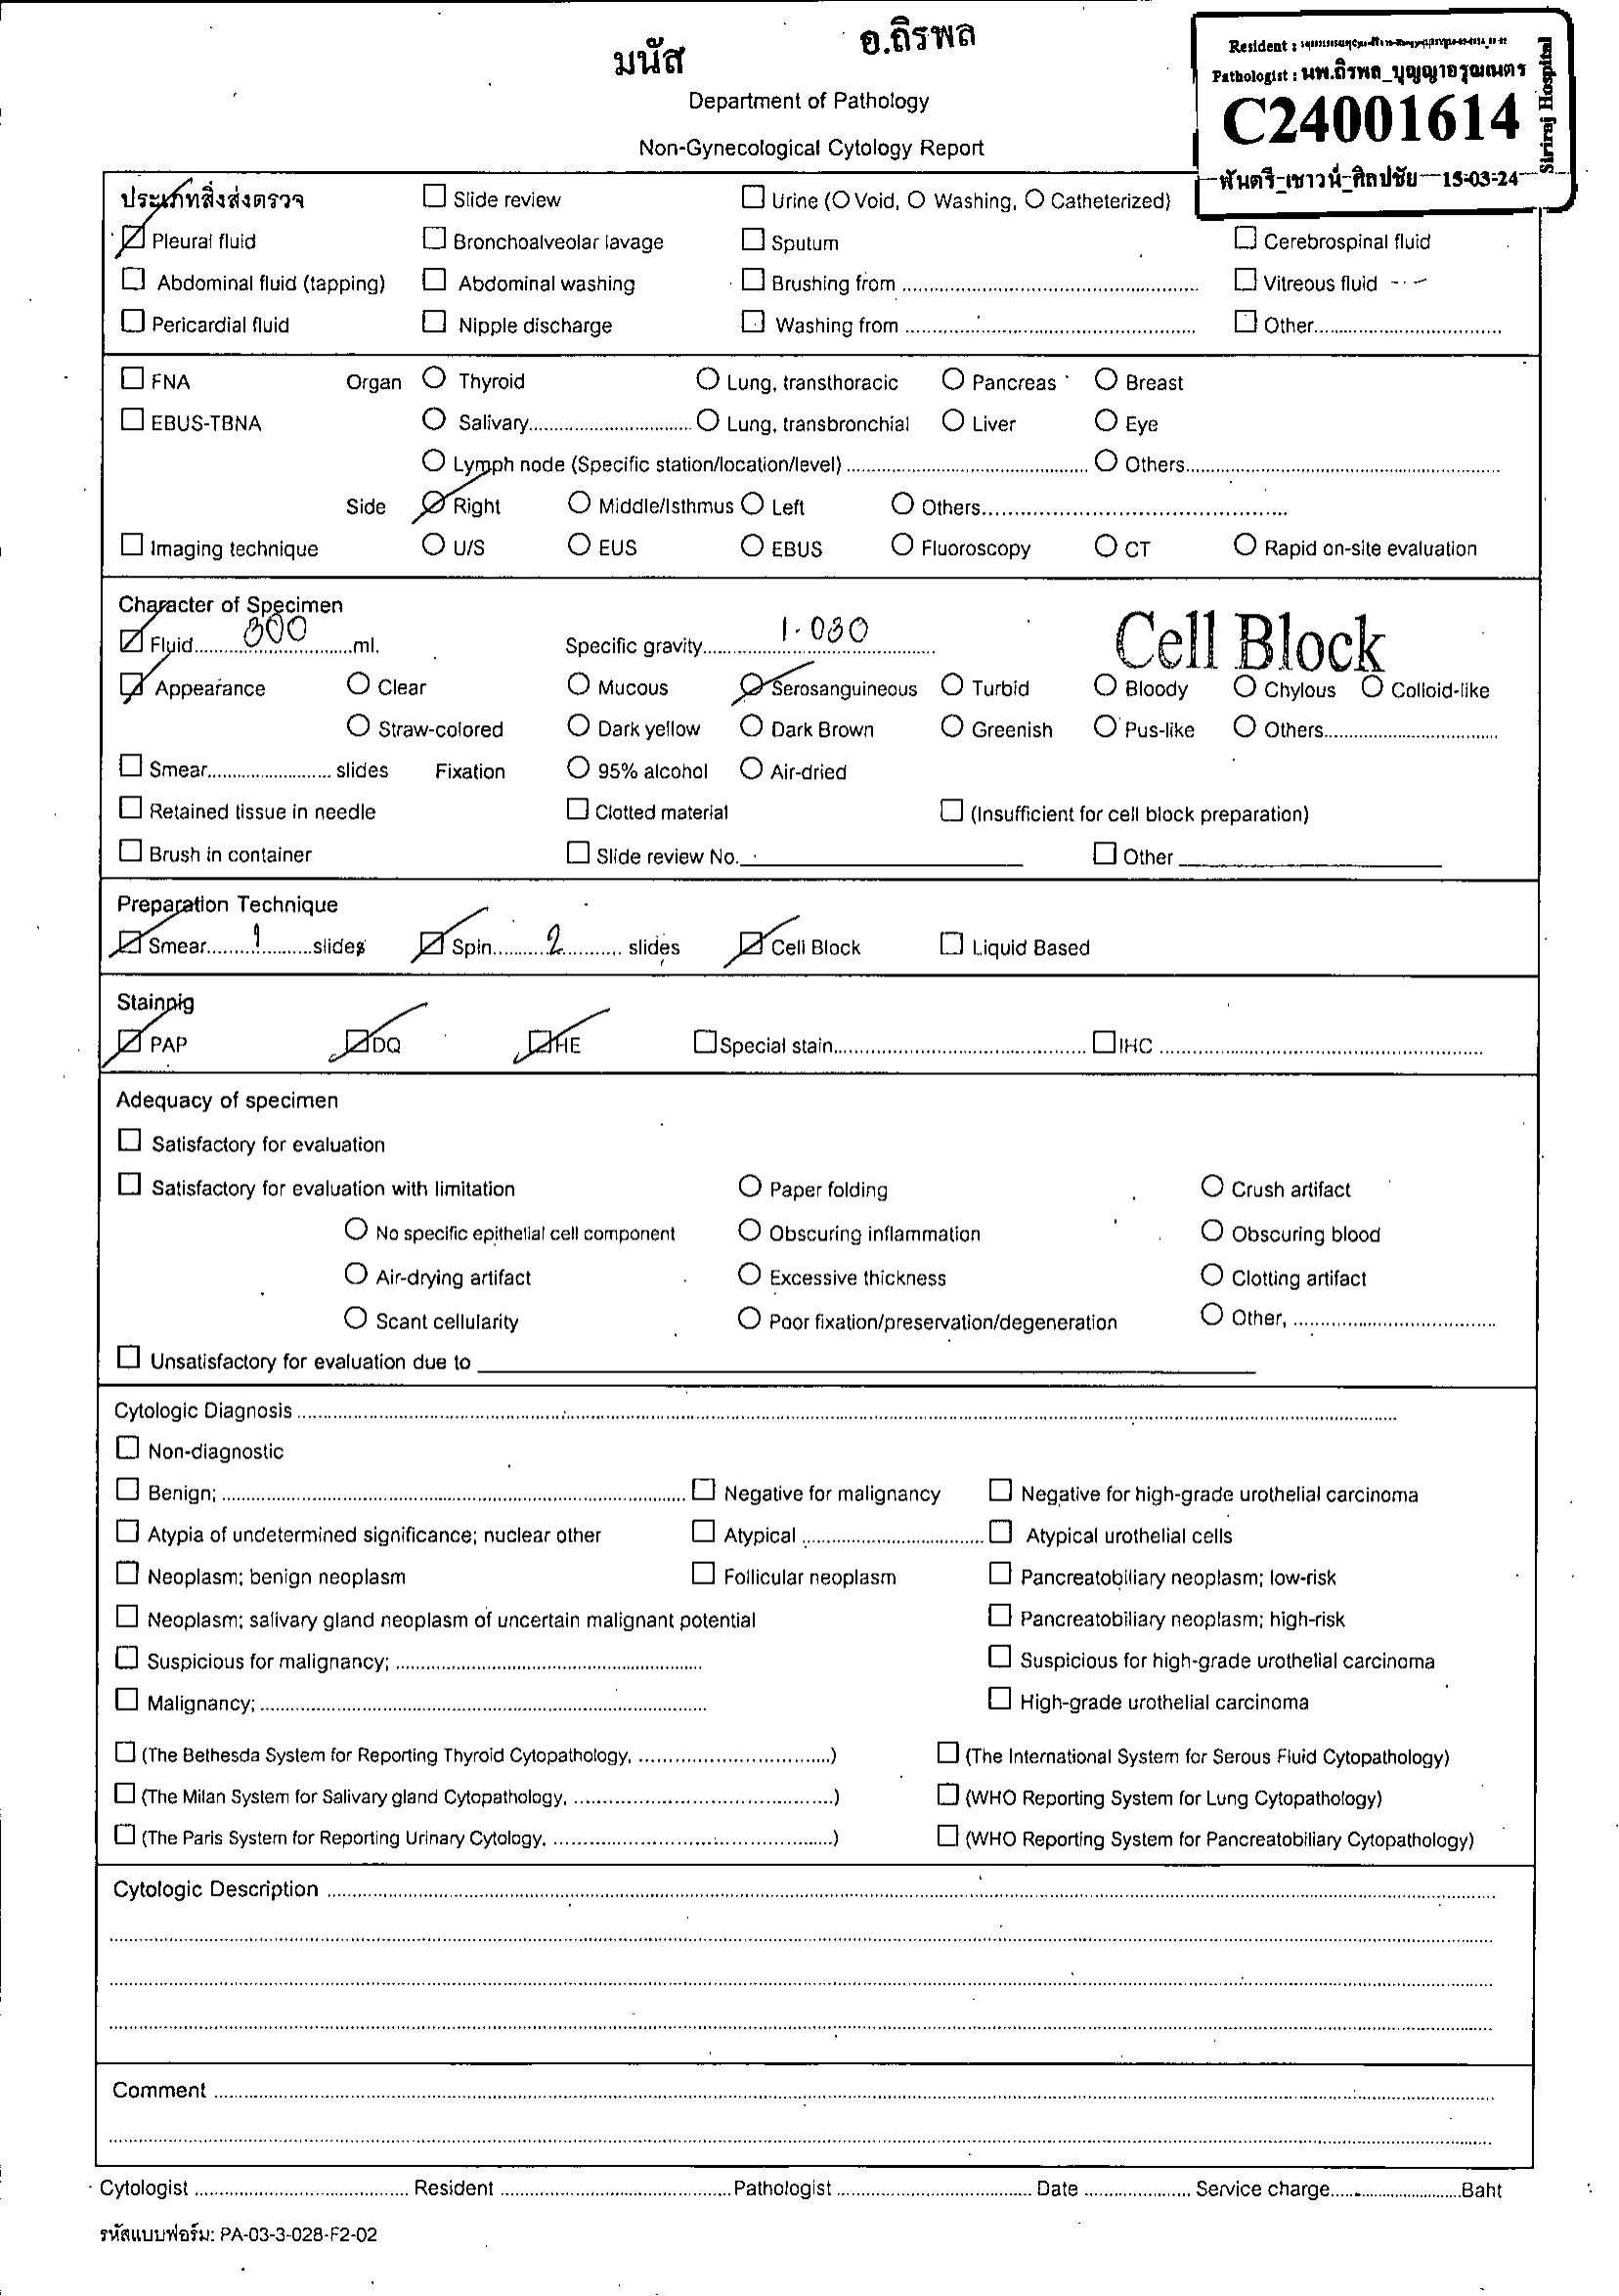 มนัส
อ.ถิรพล
Resident :
Pathologist : นพ.ถิรพล_บุญญาอรุณเนตร
C24001614
พันตรี_เชาวน์_ศิลปชัย 15-03-24
Siriraj Hospital
Department of Pathology
Non-Gynecological Cytology Report
ประเภทสิ่งส่งตรวจ Slide review Urine (O Void, O Washing, O Catheterized)
Pleural fluid Bronchoalveolar lavage Sputum Cerebrospinal fluid
Abdominal fluid (tapping) Abdominal washing Brushing from Vitreous fluid
Pericardial fluid Nipple discharge Washing from Other
FNA Organ Thyroid Lung, transthoracic Pancreas Breast
EBUS-TBNA Salivary Lung, transbronchial Liver Eye
Lymph node (Specific station/location/level) Others
Side Right Middle/Isthmus Left Others
Imaging technique U/S EUS EBUS Fluoroscopy CT Rapid on-site evaluation
Character of Specimen
Cell Block
Fluid 300 ml. Specific gravity 1.030
Appearance Clear Mucous Serosanguineous Turbid Bloody Chylous Colloid-like
Straw-colored Dark yellow Dark Brown Greenish Pus-like Others
Smear slides Fixation 95% alcohol Air-dried
Retained tissue in needle Clotted material (Insufficient for cell block preparation)
Brush in container Slide review No. Other
Preparation Technique
Smear 1 slides Spin 2 slides Cell Block Liquid Based
Staining
PAP DQ HE Special stain IHC
Adequacy of specimen
Satisfactory for evaluation
Satisfactory for evaluation with limitation Paper folding Crush artifact
No specific epithelial cell component Obscuring inflammation Obscuring blood
Air-drying artifact Excessive thickness Clotting artifact
Scant cellularity Poor fixation/preservation/degeneration Other,
Unsatisfactory for evaluation due to
Cytologic Diagnosis
Non-diagnostic
Benign; Negative for malignancy Negative for high-grade urothelial carcinoma
Atypia of undetermined significance; nuclear other Atypical Atypical urothelial cells
Neoplasm; benign neoplasm Follicular neoplasm Pancreatobiliary neoplasm; low-risk
Neoplasm; salivary gland neoplasm of uncertain malignant potential Pancreatobiliary neoplasm; high-risk
Suspicious for malignancy; Suspicious for high-grade urothelial carcinoma
Malignancy; High-grade urothelial carcinoma
(The Bethesda System for Reporting Thyroid Cytopathology, ) (The International System for Serous Fluid Cytopathology)
(The Milan System for Salivary gland Cytopathology, ) (WHO Reporting System for Lung Cytopathology)
(The Paris System for Reporting Urinary Cytology, ) (WHO Reporting System for Pancreatobiliary Cytopathology)
Cytologic Description
Comment
Cytologist Resident Pathologist Date Service charge Baht
รหัสแบบฟอร์ม: PA-03-3-028-F2-02